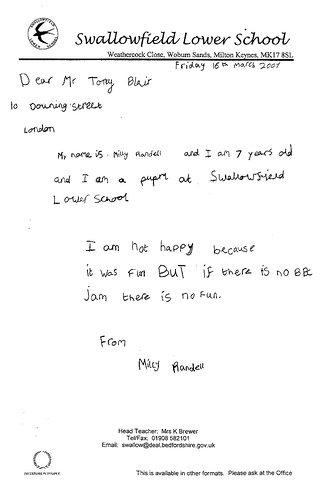 Swallowfield Lower School
Weathercock Close, Woburn Sands, Milton Keynes, MK17 8SL
Friday 16th March 2007
Dear Mr Tony Blair
10 Downing Street
London
My name is Milly Randell and I am 7 years old
and I am a pupil at Swallowsfield
Lower School
I am not happy because
it was fun BUT if there is no BBC
jam there is no fun.
From
Milly Randell
Head Teacher: Mrs K Brewer
Tel/Fax: 01908 582101
Email: swallow@deal.bedfordshire.gov.uk
This is available in other formats. Please ask at the Office